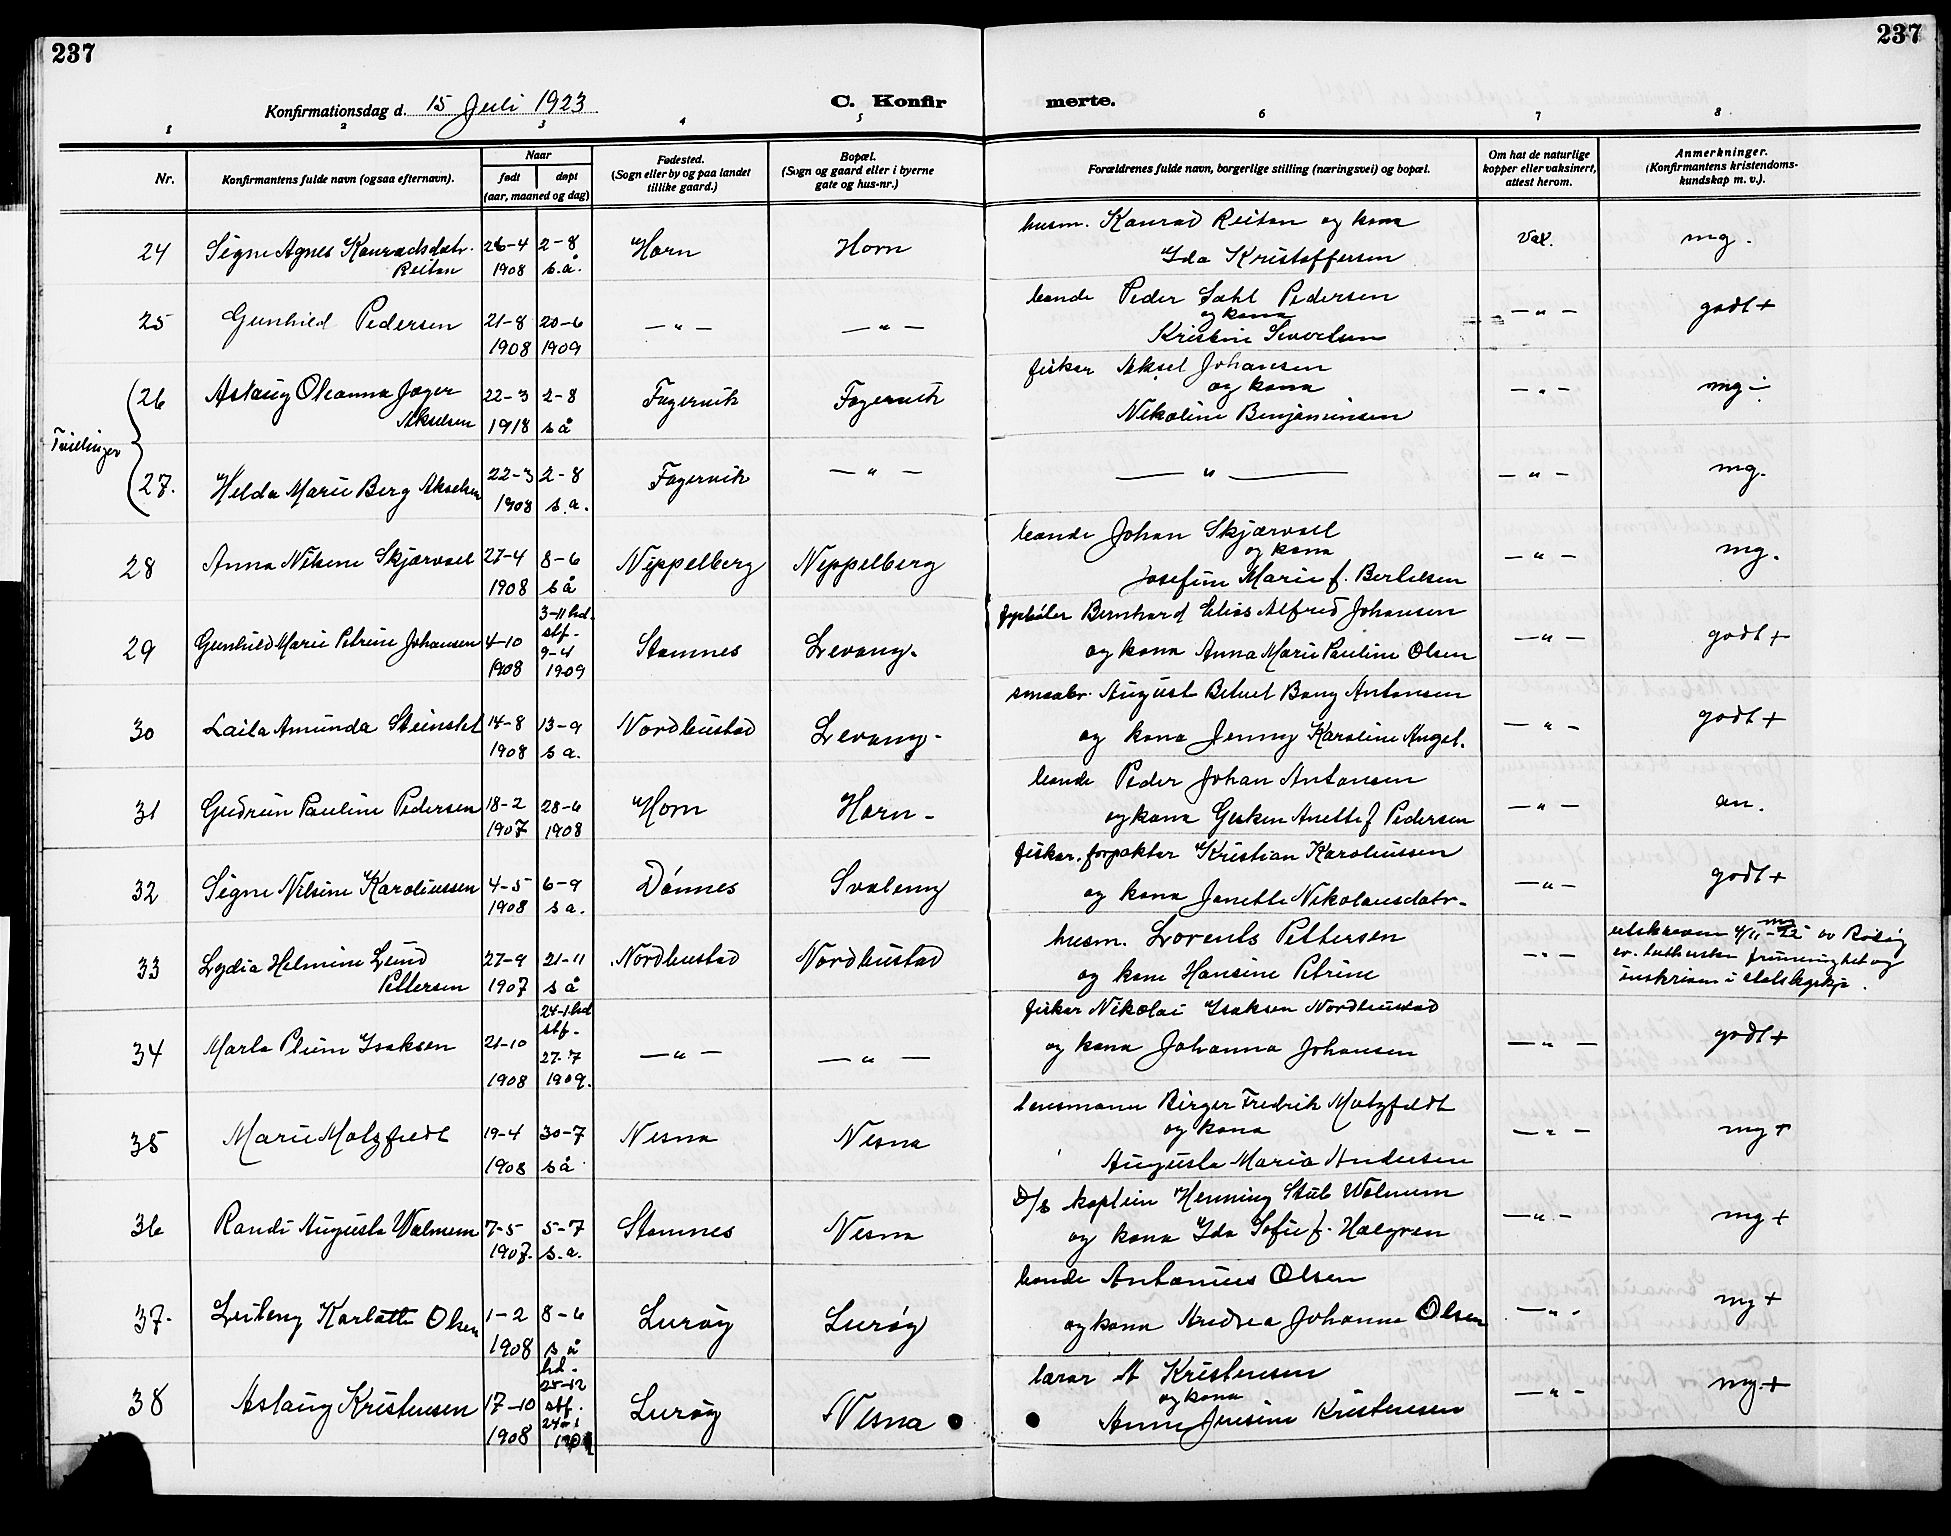 237
237
Konfirmationsdag d. 15 Juli 1923
C. Konfir
merte.
1 2 3 4 5 6 7 8
Nr.
Konfirmantens fulde navn (ogsaa efternavn).
Naar
født
døpt
(aar, maaned og dag)
Fødested.
(Sogn eller by og paa landet
tillike gaard.)
Bopæl.
(Sogn og gaard eller i byerne
gate og hus-nr.)
Forældrenes fulde navn, borgerlige stilling (næringsvei) og bopæl.
Om hat de naturlige
kopper eller vaksinert,
attest herom.
Anmerkninger.
(Konfirmantens kristendoms-
kundskap m. v.).
24 Signe Agnes Konradsdatr. 26-4 2-8 Horn Horn husm. Konrad Reitan og kona Vax. mg.
Reitan 1908 s.å. Ida Kristoffersen
25 Gunhild Pedersen 21-8 20-6 — " — — " — bonde Peder Dahl Pedersen — " — godt +
1908 1909 og kona
Kristine Sivertsen
Tvillinger
26 Aslaug Oleanna Jæger 22-3 2-8 Fagervik Fagervik fisker Aksel Johansen — " — mg ÷
Akselsen 1918 s å og kona
Nikoline Benjaminsen
27. Helda Marie Berg Akselsen 22-3 2-8 Fagervik — " — — " — — " — mg.
1908 s.a.
28 Anna Nilsine Skjærvoll 27-4 8-6 Neppelberg Neppelberg bonde Johan Skjærvoll — " — mg.
1908 s å og kona
Josefine Marie f. Bertelsen
29 Gunhild Marie Petrine Johansen 4-10 3-11 hd. Stamnes Levang. Bernhard Elias Alfred Johansen — " — godt +
1908 stf. 9-4 1909 og kona Anna Marie Pauline Olsen
30 Laila Amunda Steinslet 14-8 13-9 Nordbustad Levang. smaabr. August Betuel Bang Antonsen — " — godt +
1908 s a. og kona Jenny Karoline Angel.
31 Gudrun Pauline Pedersen 18-2 28-6 Horn Horn. bonde Peder Johan Antonsen — " — an.
1907 1908 og kona Gerken Anette f Pedersen
32 Signe Nilsine Karoliussen 4-5 6-9 Dønnes Svaleng fisker. forpakter Kristian Karoliussen — " — godt +
1908 s a. og kona Janette Nikolausdatr.
33 Lydia Helmine Lund 27-9 21-11 Nordbustad Nordbustad husm. Lorents Pettersen — " — mg
Pettersen 1907 s å og kona Hansine Petrine
utskreven 4/11-22 av Rødøy
ev. lutherske frimenighet og
innskriven i statskirkja.
34 Marla Plum Isaksen 21-10 24-1 hd — " — — " — fisker Nikolai Isaksen Nordbustad — " — godt +
1908 stf. 27-7 1909. og kona Johanna Johansen
35 Marie Motzfeldt 19-4 30-7 Nesna Nesna lensmann Birger Fredrik Motzfeldt — " — mg +
1908 s å og kona
Augusta Maria Andersen
36 Randi Augusta Walnum 7-5 5-7 Stamnes Nesna D/s kaptein Henning Stub Walnum — " — mg +
1907. s.a. og kona Ida Sofie f. Halgren
37. Leileng Karlotte Olsen 1-2 8-6 Lurøy Lurøy bonde Antonius Olsen — " — mg +
1908 s å og kona Andrea Johanna Olsen
38 Aslaug Kristensen 17-10 hd. 25-12 Lurøy Nesna lærar A Kristensen — " — mg. +
1908 stf. og kona
Anna Jensine Kristensen